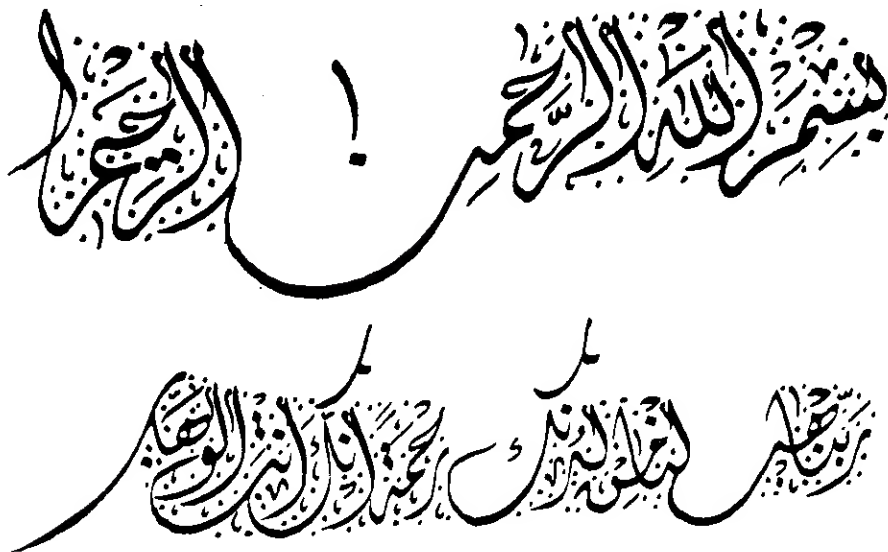 بسم الله الرحمن الرحيم
ربنا هب لنا من لدنك رحمة انك انت الوهاب